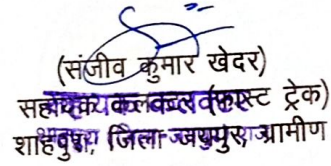 (संजीव कुमार खेदर)
सहायक कलक्टर (फास्ट ट्रेक)
शाहपुरा, जिला-जयपुर, ग्रामीण